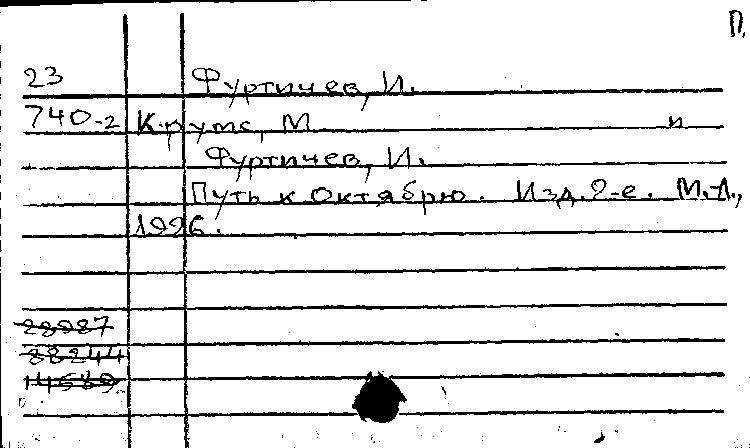 П.
23 Фуртичев, И.
740-2 Крумс, М. и
Фуртичев, И.
Путь к Октябрю. Изд. 2-е. М.-Л.,
1926.
28987
38244
14589